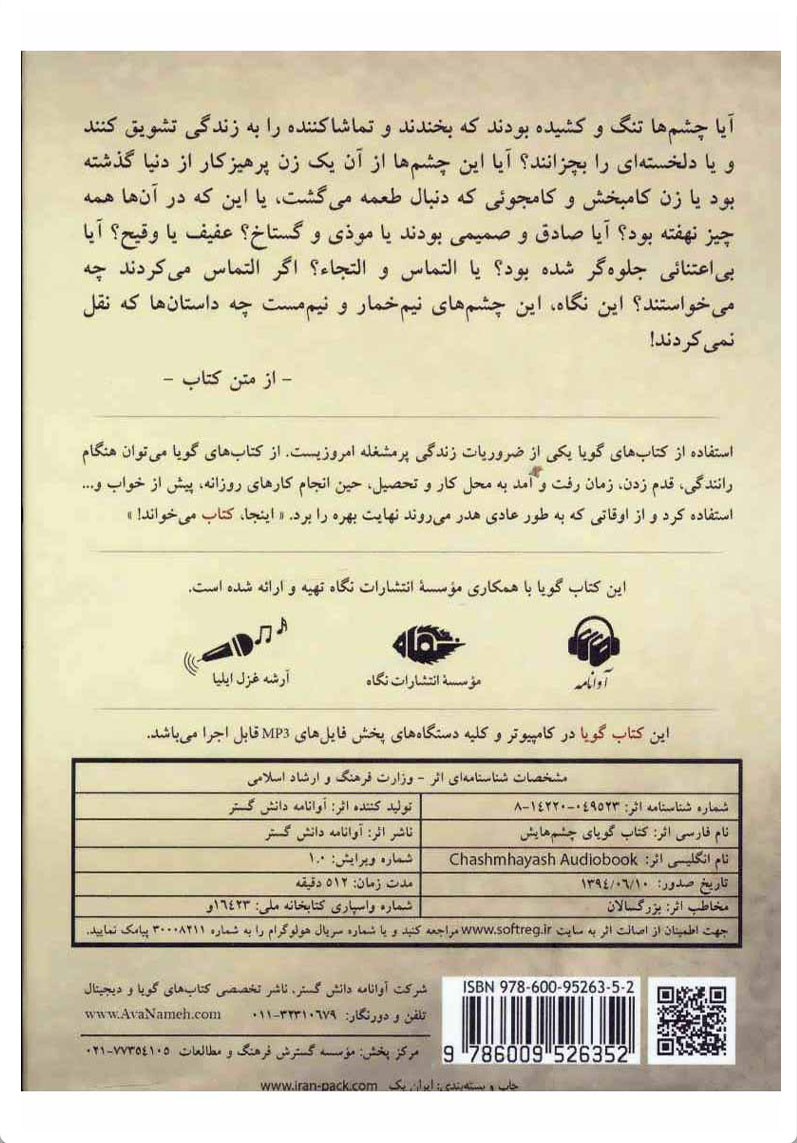 آیا چشم‌ها تنگ و کشیده بودند که بخندند و تماشاکننده را به زندگی تشویق کنند
و یا دلخسته‌ای را بچزانند؟ آیا این چشم‌ها از آن یک زن پرهیزکار از دنیا گذشته
بود یا زن کامبخش و کامجوئی که دنبال طعمه می‌گشت، یا این که در آن‌ها همه
چیز نهفته بود؟ آیا صادق و صمیمی بودند یا موذی و گستاخ؟ عفیف یا وقیح؟ آیا
بی‌اعتنائی جلوه‌گر شده بود؟ یا التماس و التجاء؟ اگر التماس می‌کردند چه
می‌خواستند؟ این نگاه، این چشم‌های نیم‌خمار و نیم‌مست چه داستان‌ها که نقل
نمی‌کردند!
- از متن کتاب -
استفاده از کتاب‌های گویا یکی از ضروریات زندگی پرمشغله امروزیست. از کتاب‌های گویا می‌توان هنگام
رانندگی، قدم زدن، زمان رفت و آمد به محل کار و تحصیل، حین انجام کارهای روزانه، پیش از خواب و...
استفاده کرد و از اوقاتی که به طور عادی هدر می‌روند نهایت بهره را برد. « اینجا، کتاب می‌خواند! »
این کتاب گویا با همکاری مؤسسۀ انتشارات نگاه تهیه و ارائه شده است.
آوانامه
مؤسسۀ انتشارات نگاه
آرشه غزل ایلیا
این کتاب گویا در کامپیوتر و کلیه دستگاه‌های پخش فایل‌های MP3 قابل اجرا می‌باشد.
مشخصات شناسنامه‌ای اثر - وزارت فرهنگ و ارشاد اسلامی
شماره شناسنامه اثر: ۰۴۹۵۲۳-۱۴۲۲۰-۸
تولید کننده اثر: آوانامه دانش گستر
نام فارسی اثر: کتاب گویای چشم‌هایش
ناشر اثر: آوانامه دانش گستر
نام انگلیسی اثر: Chashmhayash Audiobook
شماره ویرایش: ۱.۰
تاریخ صدور: ۱۳۹٤/۰٦/۱۰
مدت زمان: ۵۱۲ دقیقه
مخاطب اثر: بزرگسالان
شماره واسپاری کتابخانه ملی: ۱٦٤۲۳و
جهت اطمینان از اصالت اثر به سایت www.softreg.ir مراجعه کنید و یا شماره سریال هولوگرام را به شماره ۳۰۰۰۸۲۱۱ پیامک نمایید.
شرکت آوانامه دانش گستر، ناشر تخصصی کتاب‌های گویا و دیجیتال
تلفن و دورنگار: ۳۲۳۱۰٦۷۹-۰۱۱ www.AvaNameh.com
مرکز پخش: مؤسسه گسترش فرهنگ و مطالعات ۷۷۳۵٤۱۰۵-۰۲۱
ISBN 978-600-95263-5-2
9 786009 526352
چاپ و بسته‌بندی: ایران پک www.iran-pack.com